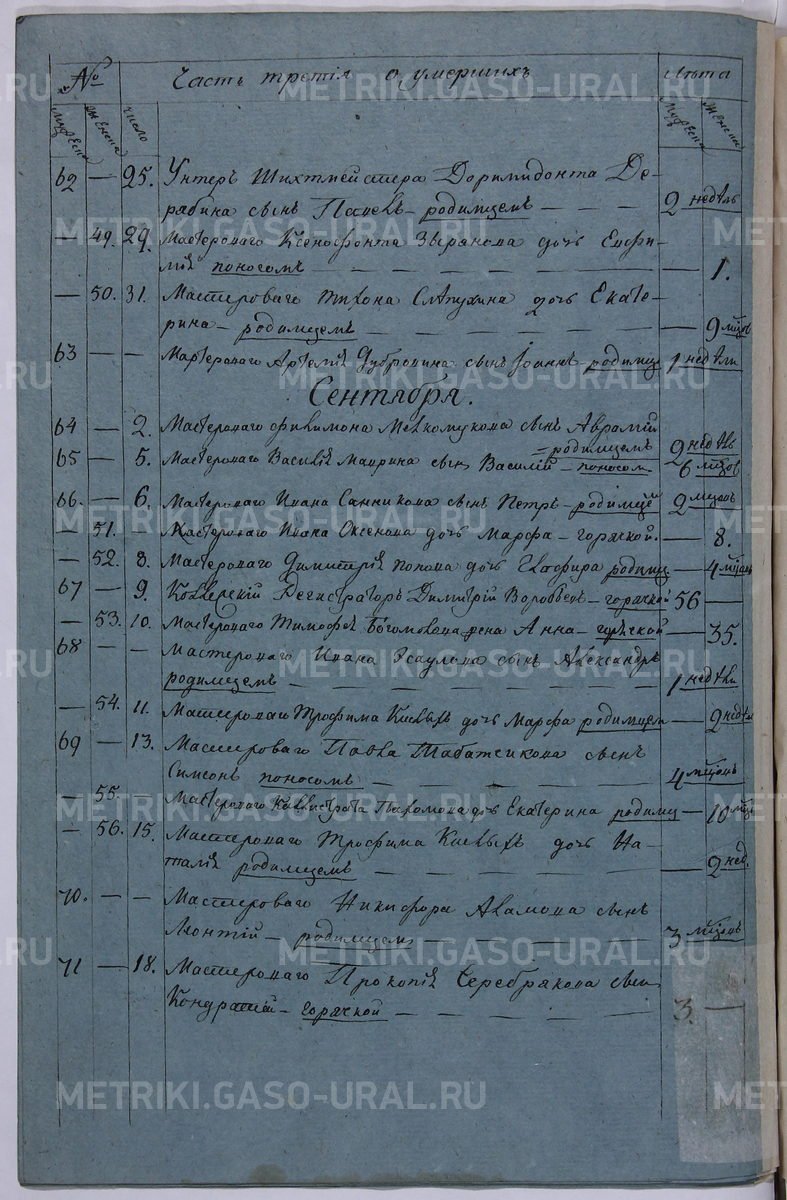 № Часть третія о умершихъ Лѣта
мужеска женска число мужеска женска
62 — 25. Унтеръ Шихтмейстера Доримидонта Де-
рябина сынъ — родимцемъ — — — 2 недѣль
— 49. 29. Мастероваго Ксенофонта Зырянова дочь Евфи-
мія поносомъ — — — — — — — 1.
— 50. 31. Мастероваго Тихона Слѣпухина дочь Екате-
рина — родимцемъ — — — — — — 9 мѣцов
63 — — Мастероваго Артемія Дубровина сынъ Іоаннъ — родимц 1 недѣли
Сентября.
64 — 2. Мастероваго Филимона сынъ Аврамій
— родимцемъ 2 недѣль
65 — 5. Мастероваго Василія Маврина сынъ Василій — поносом 6 мѣцов
66. — 6. Мастероваго Ивана Санникова сынъ Петръ — родимцем 2 мѣцовъ
— 51. — Мастероваго Ивана Оксенова дочь Марфа — горячкой. — 8.
— 52. 8. Мастероваго Димитрія Попова дочь Глафира родимц — 4 мѣцовъ
67 — 9. Регистраторъ Димитрій Воробьевъ — горячкой 56 —
— 53. 10. Мастероваго Тимофея Богомолова жена Анна — горячкой — 35.
68 — — Мастероваго Ивана Эсаулова сынъ Александръ
родимцемъ — — — — — — — 1 недѣли
— 54. 11. Мастероваго Трофима Киевыхъ дочь Марфа родимцем — 2 недѣл
69 — 13. Мастероваго Павла Табатчикова сынъ
Симеонъ поносомъ — — — — — — 4 мѣцовъ
— 55. — Мастероваго Каллистрата Пахомова дочь Екатерина родимц — 10 мѣц
— 56. 15. Мастероваго Трофима Киевыхъ дочь На-
талія родимцемъ — — — — — — 2 нед.
70. — — Мастероваго Никифора сынъ
Леонтій — родимцемъ — — — — 3 мѣцовъ
71 — 18. Мастероваго Прокопія Серебрякова сын
Кондратій — горячкой — — — — 3. —
METRIKI.GASO-URAL.RU